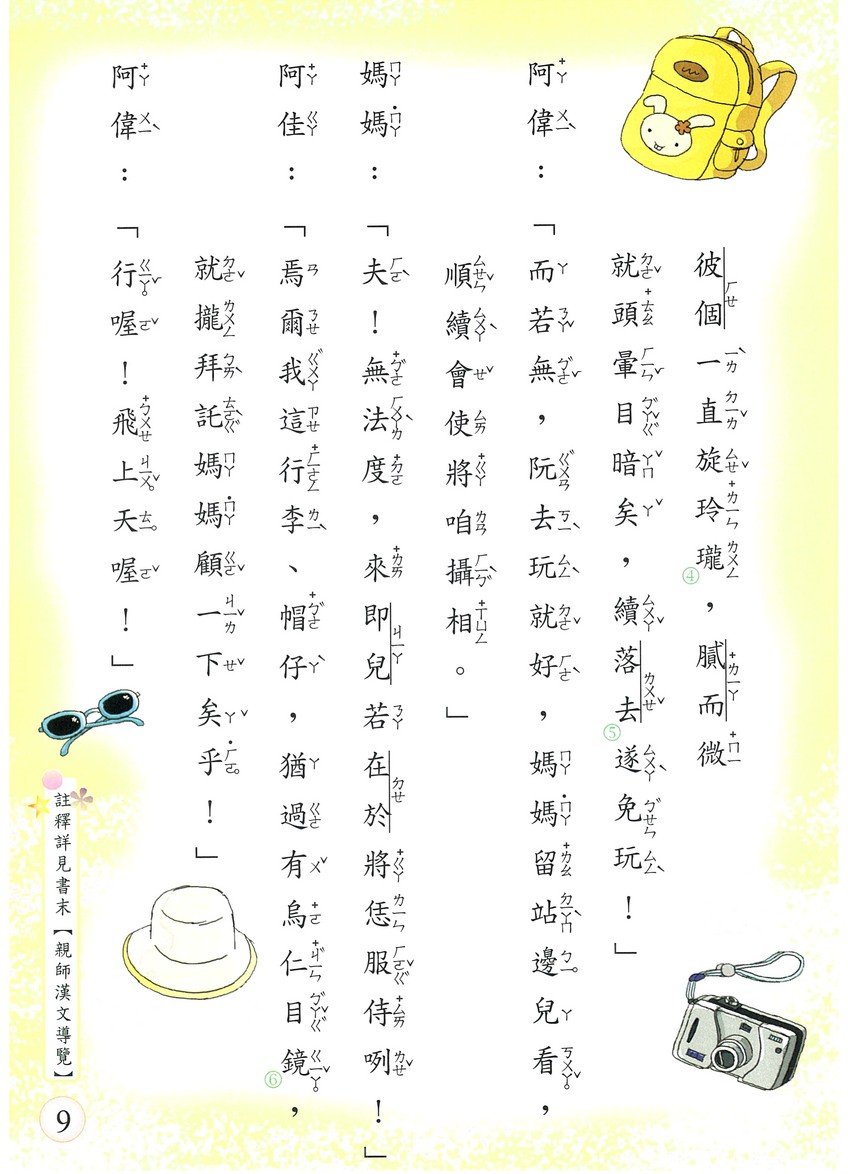 彼個一直旋玲瓏④，膩而微
就頭暈目暗矣，續落去⑤遂免玩！」
阿偉：「而若無，阮去玩就好，媽媽留站邊兒看，
順續會使將咱攝相。」
媽媽：「夫！無法度，來即兒若在於將恁服侍咧！」
阿佳：「焉爾我這行李、帽仔，猶過有烏仁目鏡⑥，
就攏拜託媽媽顧一下矣乎！」
阿偉：「行喔！飛上天喔！」
註釋詳見書末【親師漢文導覽】
9